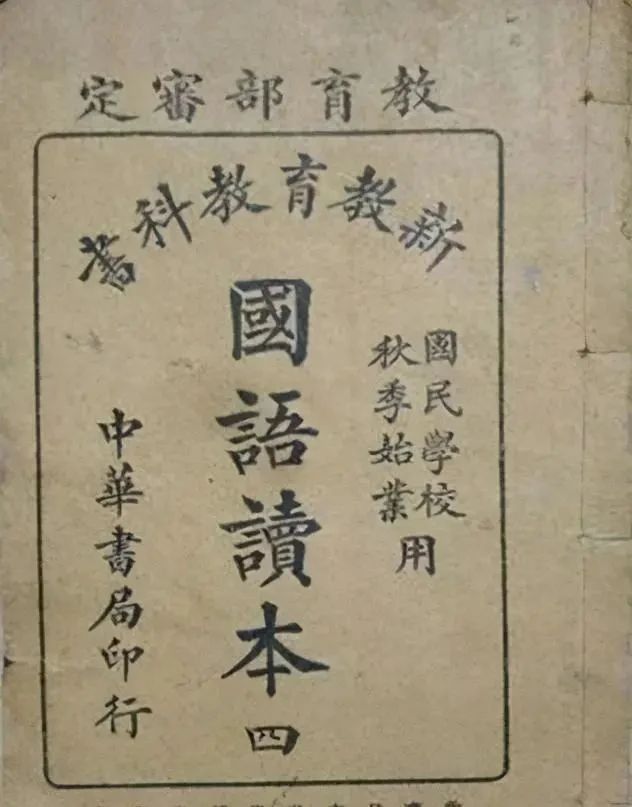 教育部審定
新教育教科書
國民學校
秋季始業
用
國語讀本
四
中華書局印行